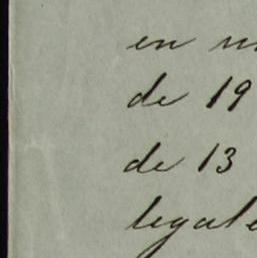 en
de 19
de 13
legale